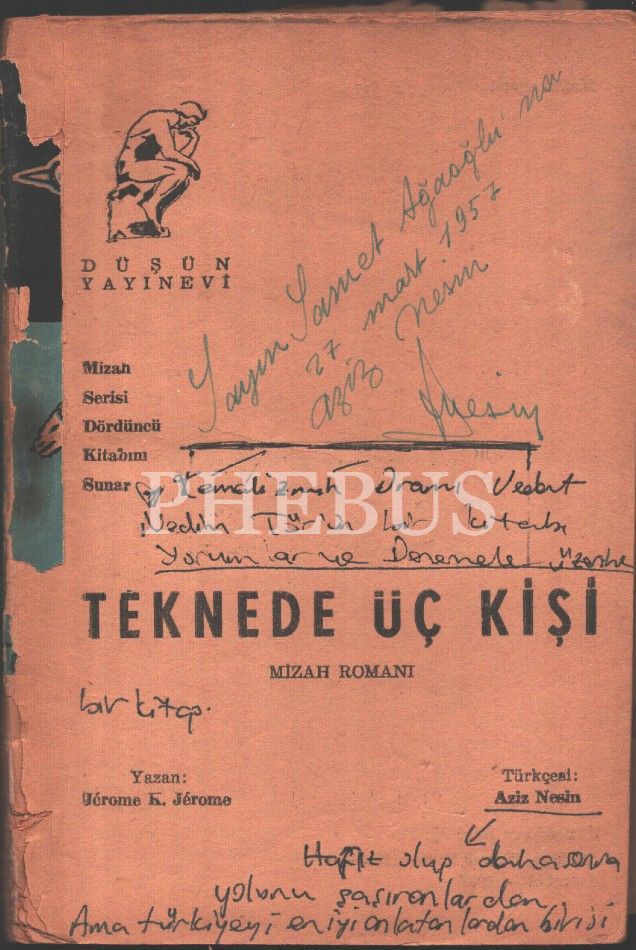 DÜŞÜN
YAYINEVİ
Sayın Samet Ağaoğlu'na
27 mart 1957
Aziz Nesin
Mizah
Serisi
Dördüncü
Kitabını
Sunar
PHEBUS
Dramı Vedat
Nedim Tör'ün bir kitabı
Yorumlar ve Denemeler üzerine
TEKNEDE ÜÇ KİŞİ
MİZAH ROMANI
bir kitap.
Yazan:
Jérome K. Jérome
Türkçesi:
Aziz Nesin
olup daha sonra
yolunu şaşıranlardan.
Ama türkiyeyi en iyi anlatanlardan birisi